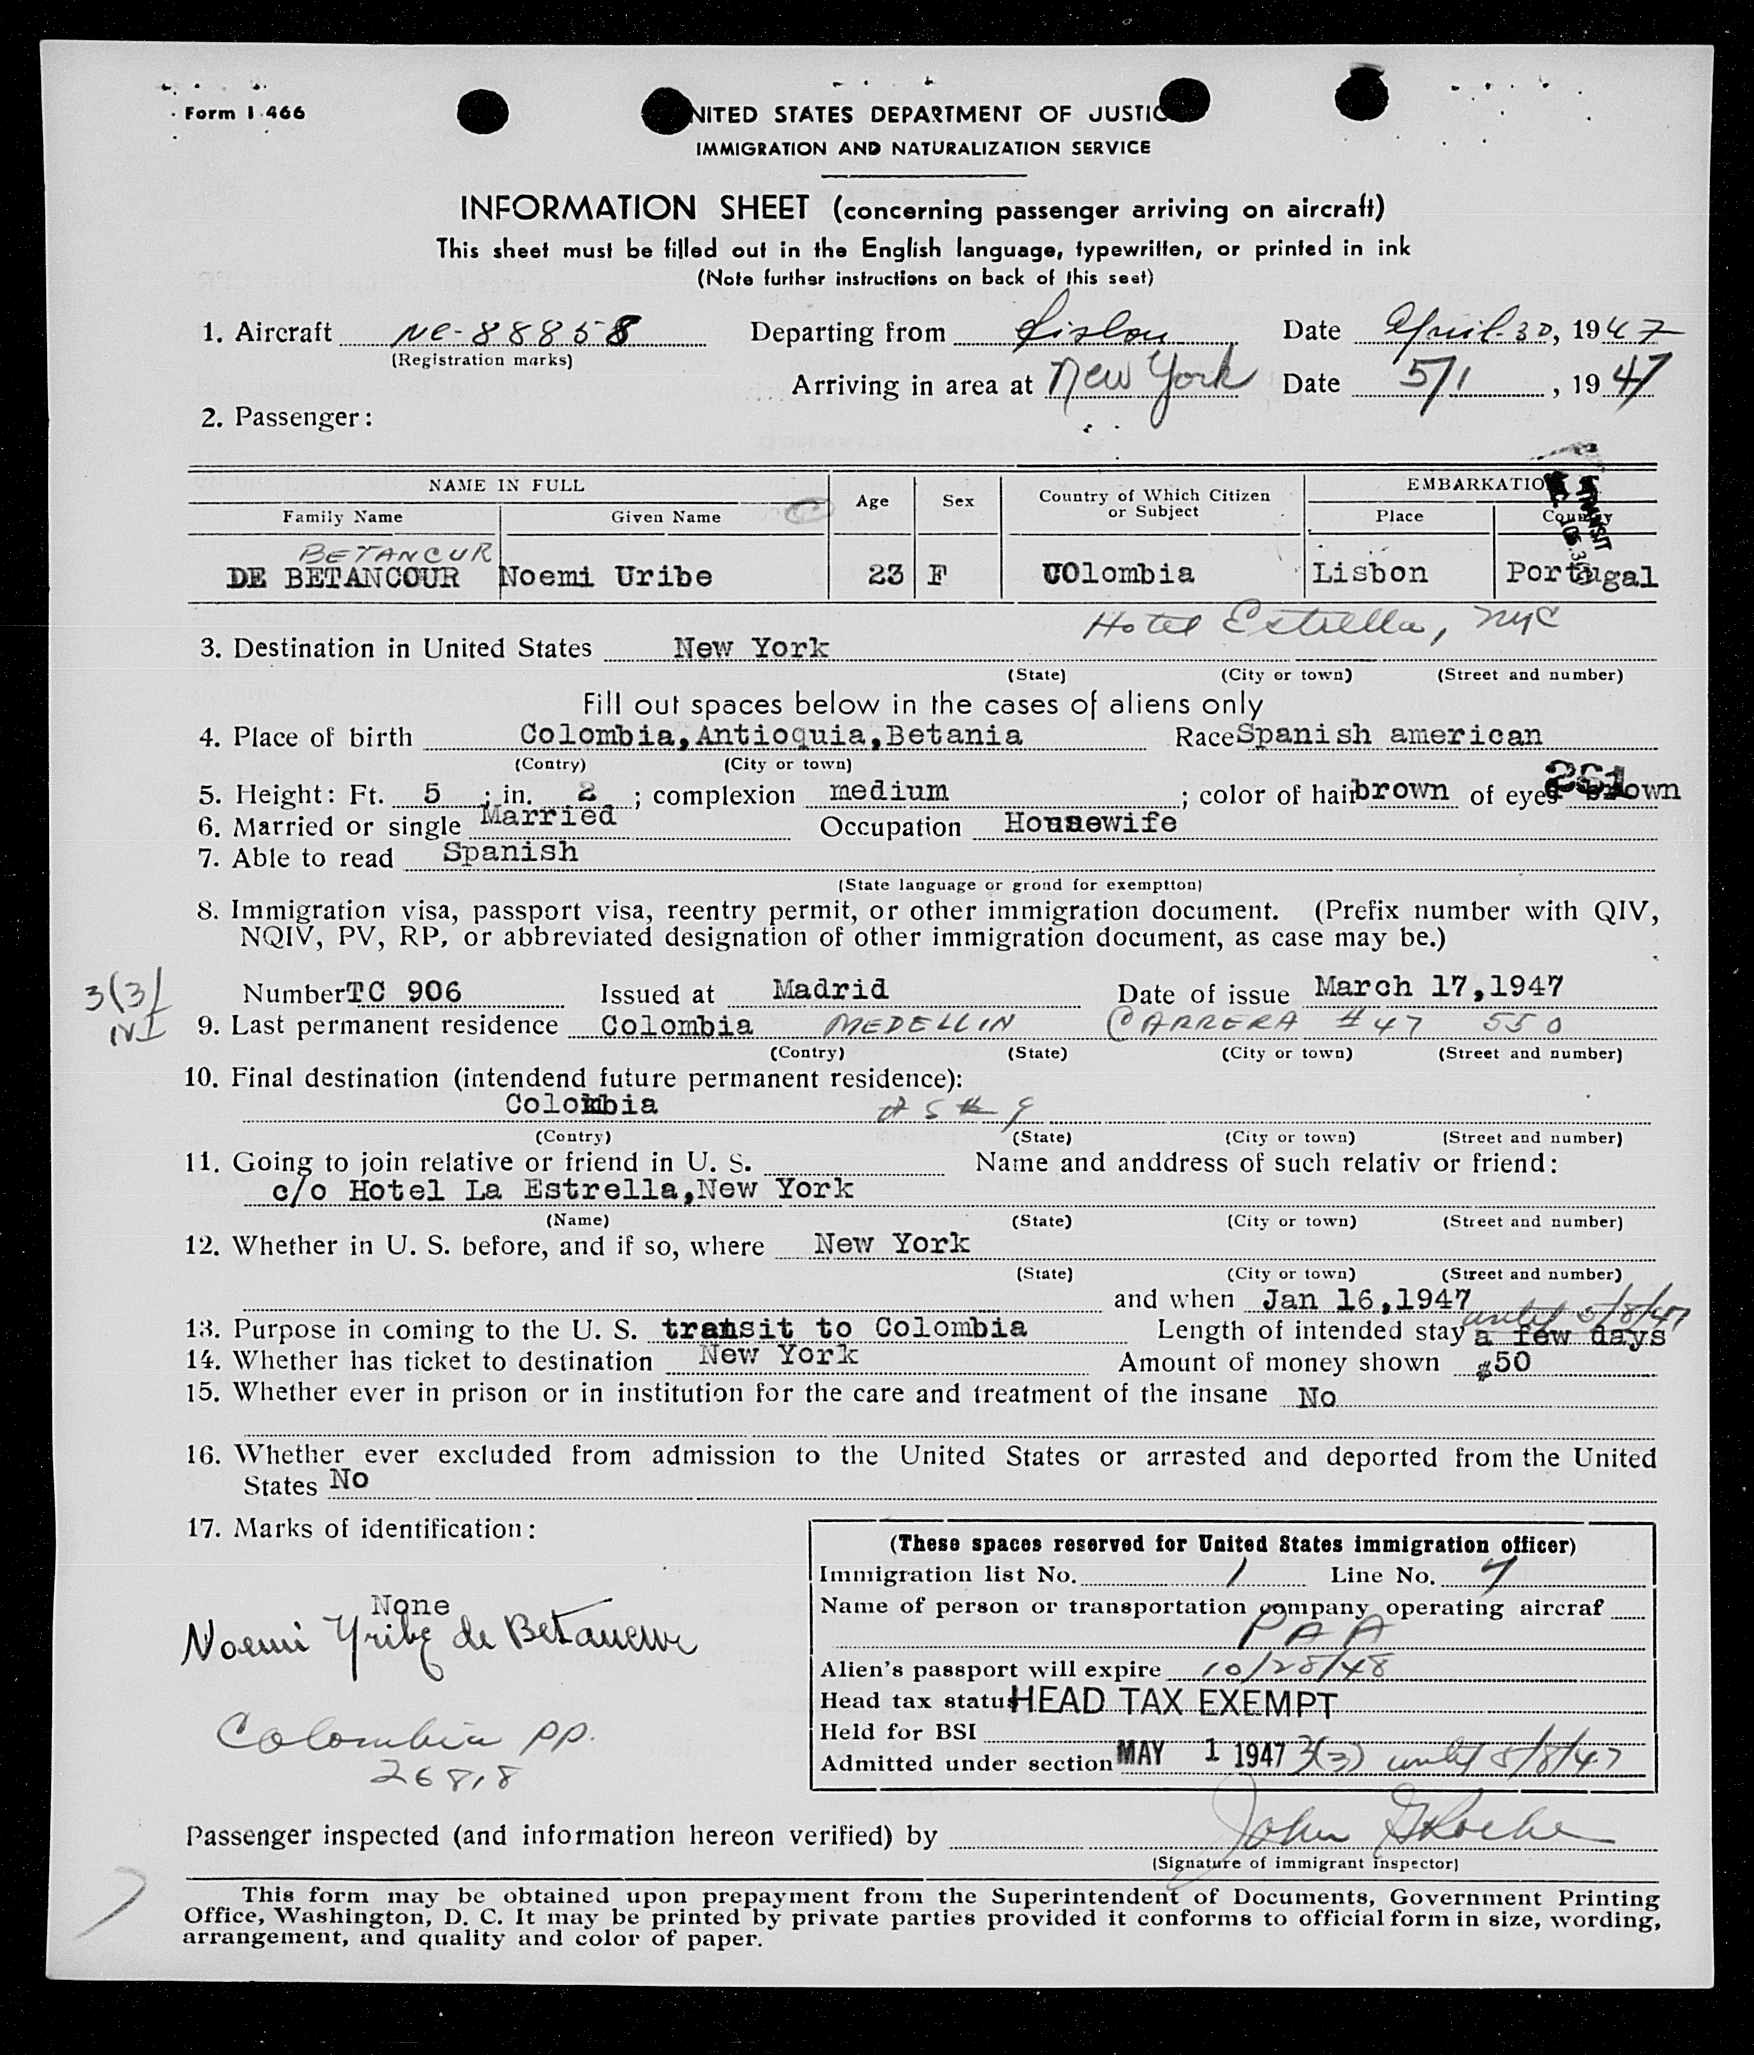 Form I 466
UNITED STATES DEPARTMENT OF JUSTIC
IMMIGRATION AND NATURALIZATION SERVICE
INFORMATION SHEET (concerning passenger arriving on aircraft)
This sheet must be filled out in the English language, typewritten, or printed in ink
(Note further instructions on back of this seet)
1. Aircraft NC-88858 Departing from Lisbon Date April 30, 1947
(Registration marks)
Arriving in area at New York Date 5/1, 1947
2. Passenger:
NAME IN FULL Age Sex Country of Which Citizen or Subject EMBARKATIO
Family Name Given Name Place Country
BETANCUR
DE BETANCOUR Noemi Uribe 23 F COlombia Lisbon Portugal
Hotel Estrella, NYC
3. Destination in United States New York
(State) (City or town) (Street and number)
Fill out spaces below in the cases of aliens only
4. Place of birth Colombia, Antioquia, Betania Race Spanish american
(Contry) (City or town)
261
5. Height: Ft. 5 ; in. 2 ; complexion medium ; color of hair brown of eyes brown
6. Married or single Married Occupation Housewife
7. Able to read Spanish
(State language or grond for exemption)
8. Immigration visa, passport visa, reentry permit, or other immigration document. (Prefix number with QIV,
NQIV, PV, RP, or abbreviated designation of other immigration document, as case may be.)
3(3)
NI
Number TC 906 Issued at Madrid Date of issue March 17,1947
9. Last permanent residence Colombia MEDELLIN CARRERA #47 550
(Contry) (State) (City or town) (Street and number)
10. Final destination (intendend future permanent residence):
Colombia
(Contry) (State) (City or town) (Street and number)
11. Going to join relative or friend in U. S. Name and anddress of such relativ or friend:
c/o Hotel La Estrella, New York
(Name) (State) (City or town) (Street and number)
12. Whether in U. S. before, and if so, where New York
(State) (City or town) (Street and number)
and when Jan 16,1947
until 5/8/47
13. Purpose in coming to the U. S. transit to Colombia Length of intended stay a few days
14. Whether has ticket to destination New York Amount of money shown $50
15. Whether ever in prison or in institution for the care and treatment of the insane No
16. Whether ever excluded from admission to the United States or arrested and deported from the United
States No
17. Marks of identification:
None
Noemi Uribe de Betancur
Colombia pp.
26818
(These spaces reserved for United States immigration officer)
Immigration list No. 1 Line No. 7
Name of person or transportation company operating aircraf
PAA
Alien's passport will expire 10/28/48
Head tax status HEAD TAX EXEMPT
Held for BSI
Admitted under section MAY 1 1947 3(3) until 5/8/47
Passenger inspected (and information hereon verified) by John Roche
(Signature of immigrant inspector)
This form may be obtained upon prepayment from the Superintendent of Documents, Government Printing
Office, Washington, D. C. It may be printed by private parties provided it conforms to official form in size, wording,
arrangement, and quality and color of paper.